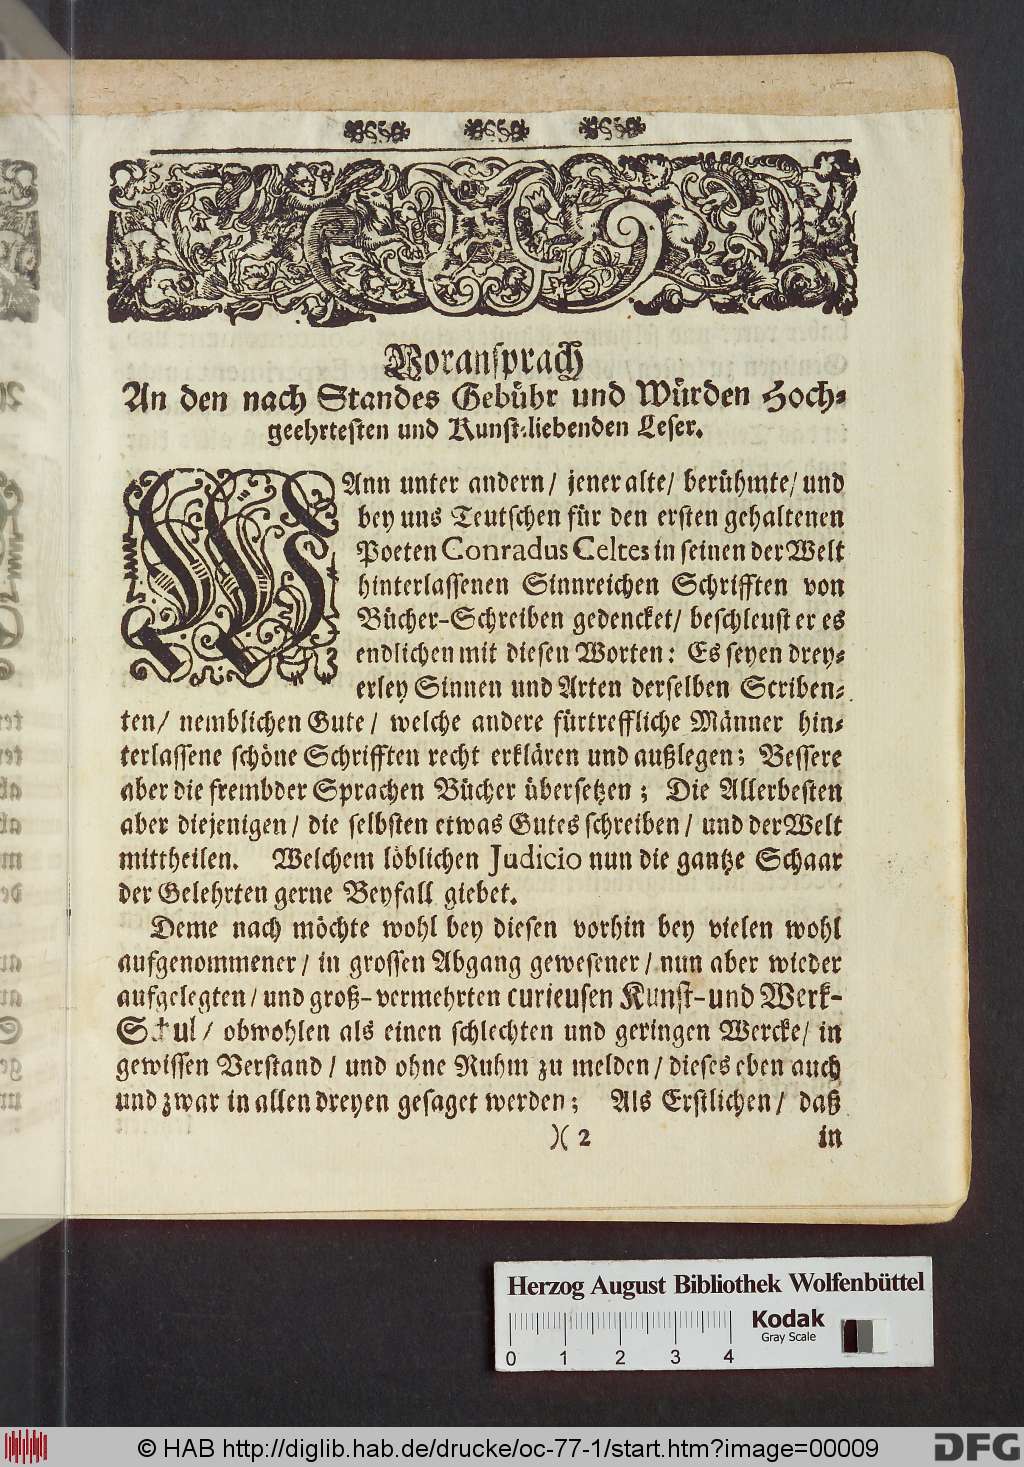 Voransprach
An den nach Standes Gebühr und Würden Hoch-
geehrtesten und Kunst-liebenden Leser.
WAnn unter andern/ jener alte/ berühmte/ und
bey uns Teutschen für den ersten gehaltenen
Poeten Conradus Celtes in seinen der Welt
hinterlassenen Sinnreichen Schrifften von
Bücher-Schreiben gedencket/ beschleust er es
endlichen mit diesen Worten: Es seyen drey-
erley Sinnen und Arten derselben Scriben-
ten/ nemblichen Gute/ welche andere fürtreffliche Männer hin-
terlassene schöne Schrifften recht erklären und außlegen; Bessere
aber die frembder Sprachen Bücher übersetzen; Die Allerbesten
aber diejenigen/ die selbsten etwas Gutes schreiben/ und der Welt
mittheilen. Welchem löblichen Judicio nun die gantze Schaar
der Gelehrten gerne Beyfall giebet.
Deme nach möchte wohl bey diesen vorhin bey vielen wohl
aufgenommener/ in grossen Abgang gewesener/ nun aber wieder
aufgelegten/ und groß-vermehrten curieusen Kunst-und Werk-
Schul/ obwohlen als einen schlechten und geringen Wercke/ in
gewissen Verstand/ und ohne Ruhm zu melden/ dieses eben auch
und zwar in allen dreyen gesaget werden; Als Erstlichen/ daß
)( 2 in
Herzog August Bibliothek Wolfenbüttel
0 1 2 3 4
Kodak
Gray Scale
© HAB http://diglib.hab.de/drucke/oc-77-1/start.htm?image=00009
DFG